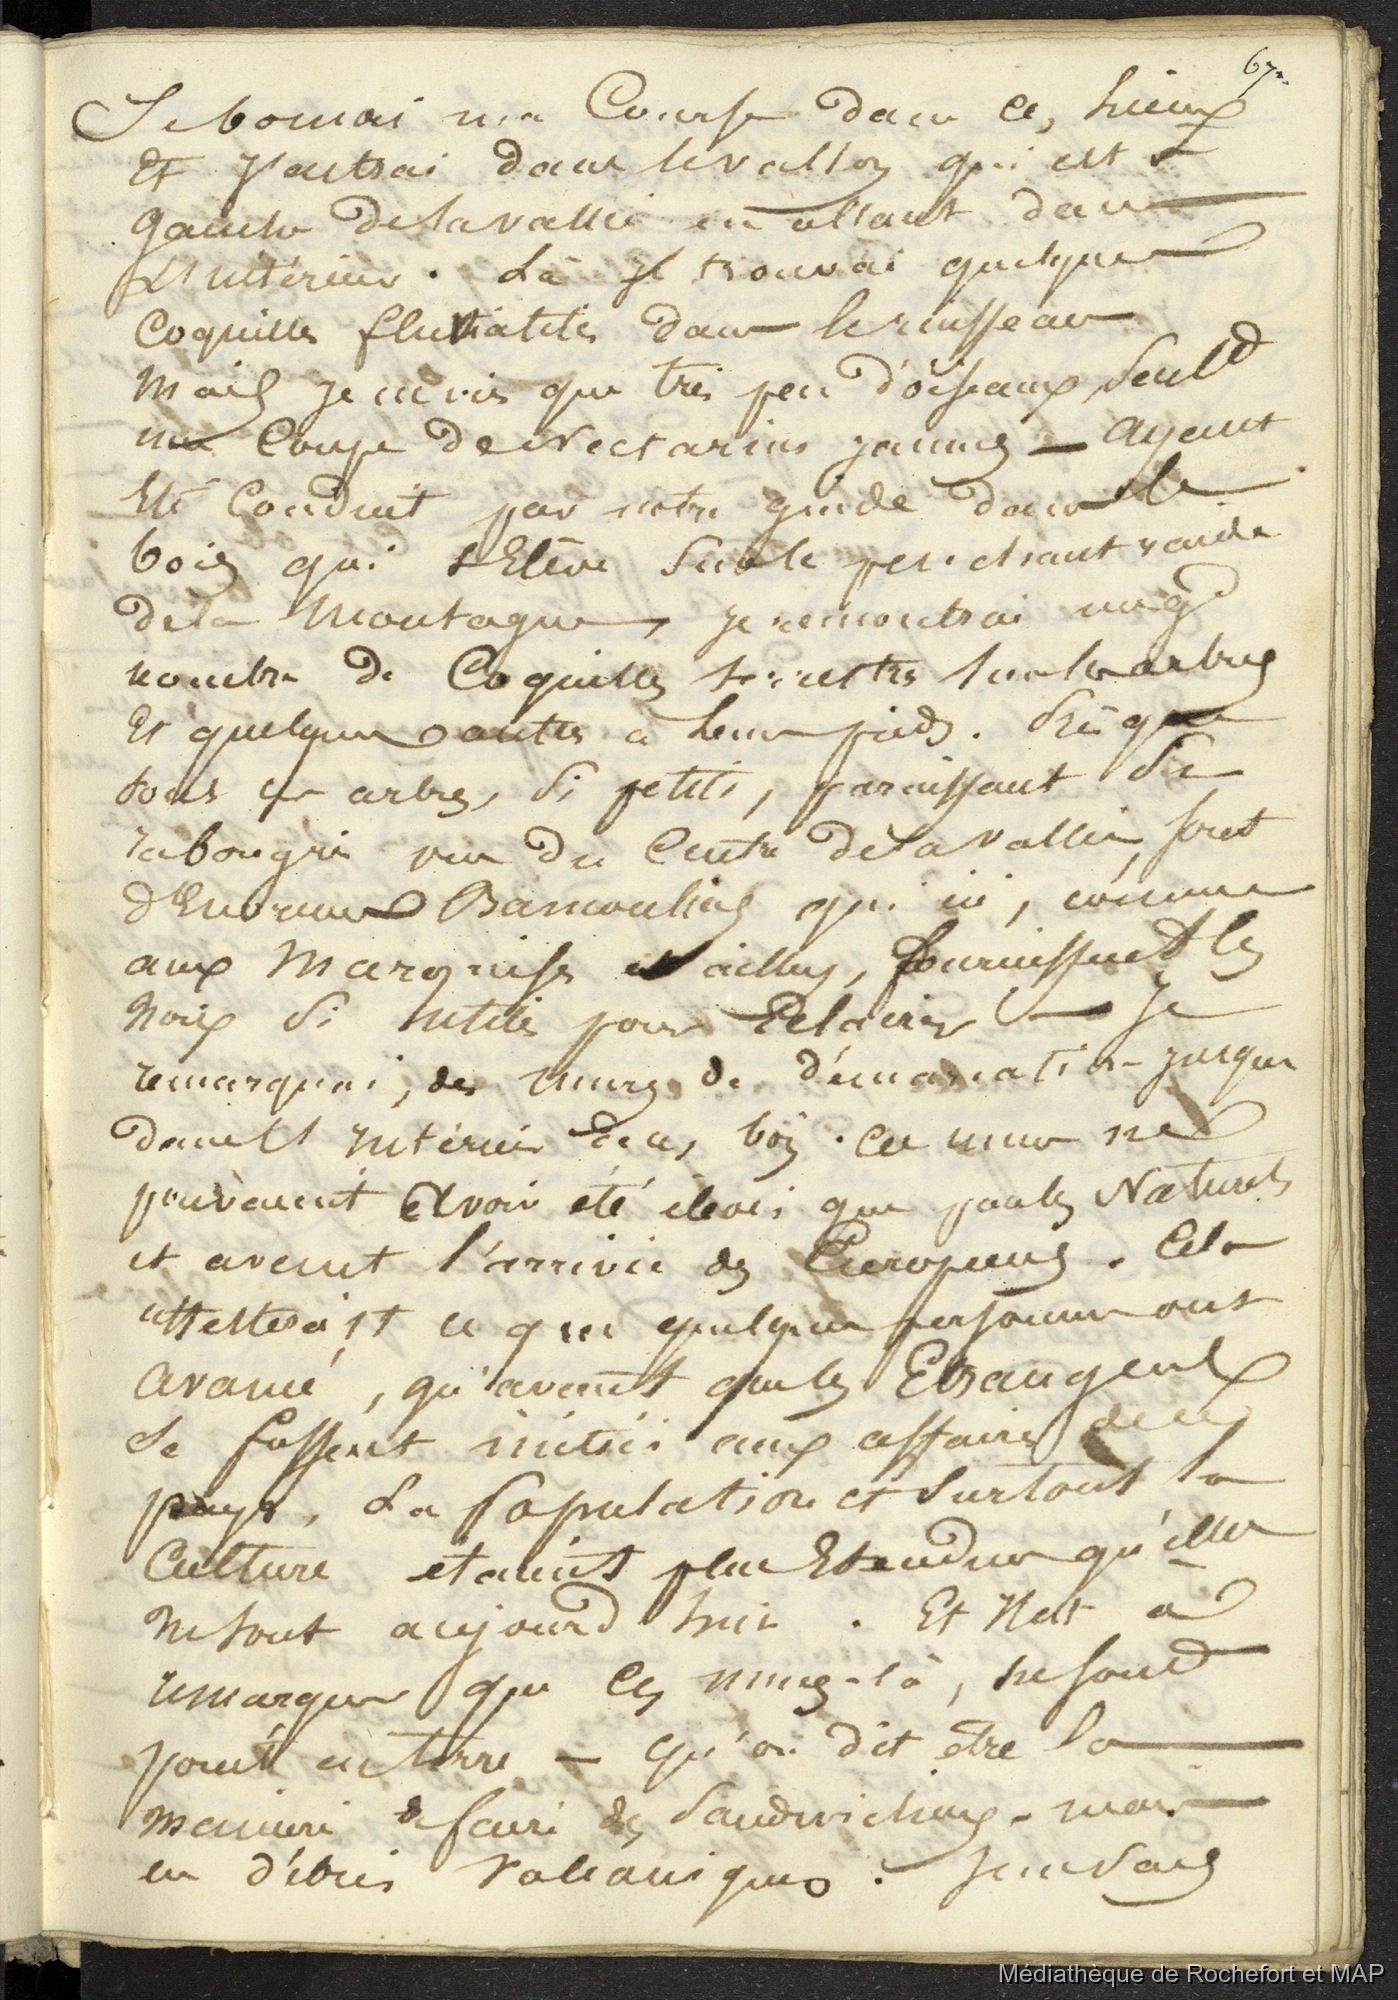 67.
Je bornai ma Course dans ces lieux
Et J'entrai dans le vallon qui est à
gauche de la vallée en allant dans
L'Intérieur. Là Je trouvai quelques
Coquilles fluviatiles dans le ruisseau
Mais je ne vis que très peu d'oiseaux, Seulᵗ
une Coupe de Nectarins jaunes — ayant
Eté Conduit par notre guide dans le
bois qui s'Elève Sur le penchant raide
de la Montagne, je rencontrai un gᵈ
nombre de Coquilles terrestres sur les arbres
Et quelques autres à leurs pieds.
tous ces arbres, Si petits, paraissant Si
rabougris vus du Centre de la vallée, sont
d'Enormes Bancouliers qui ici, comme
aux Marquises et ailleurs, fournissent les
Noix Si utiles pour Eclairer — Je
remarquai, des murs de démarcation jusques
dans l'Intérieur de ces bois. Ces murs ne
pouvaient Avoir été élevés que par les Naturels
et avant l'arrivée des Européens. Cela
attesterait ce que quelques personnes ont
avancé, qu'avant que les Etrangers
se fussent initiés aux affaires de ce
pays, La Population et Surtout la
Culture étaient plus Etendues qu'elles
ne sont aujourd'hui. Et Il est à
remarquer que Ces murs-là, ne sont
point en terre — qu'on dit être la
manière de faire des Sandwichiens — mais
en débris Volcaniques. Je ne Sais
Médiathèque de Rochefort et MAP